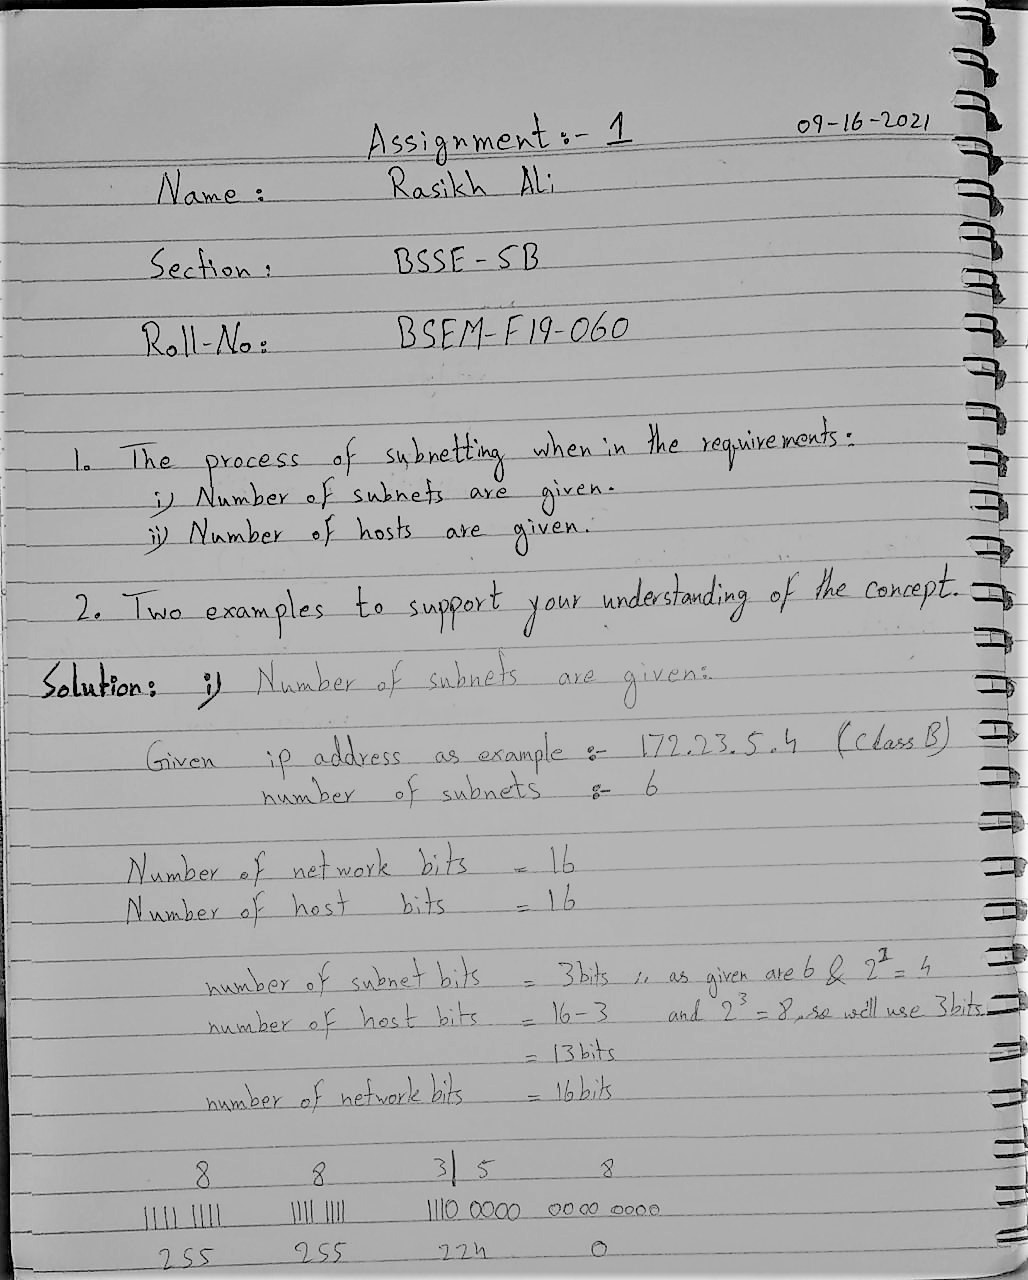 09-16-2021
Assignment :- 1
Name : Rasikh Ali
Section : BSSE - 5B
Roll-No : BSEM-F19-060
1. The process of subnetting when in the requirements :
i) Number of subnets are given.
ii) Number of hosts are given.
2. Two examples to support your understanding of the concept.
Solution : i) Number of subnets are given :
Given ip address as example :- 172.23.5.4 (Class B)
number of subnets :- 6
Number of network bits = 16
Number of host bits = 16
number of subnet bits = 3bits ∵ as given are 6 & 2² = 4
number of host bits = 16-3 and 2³ = 8, so we'll use 3bits.
= 13bits
number of network bits = 16bits
8 8 3| 5 8
1111 1111 1111 1111 1110 0000 0000 0000
255 255 224 0